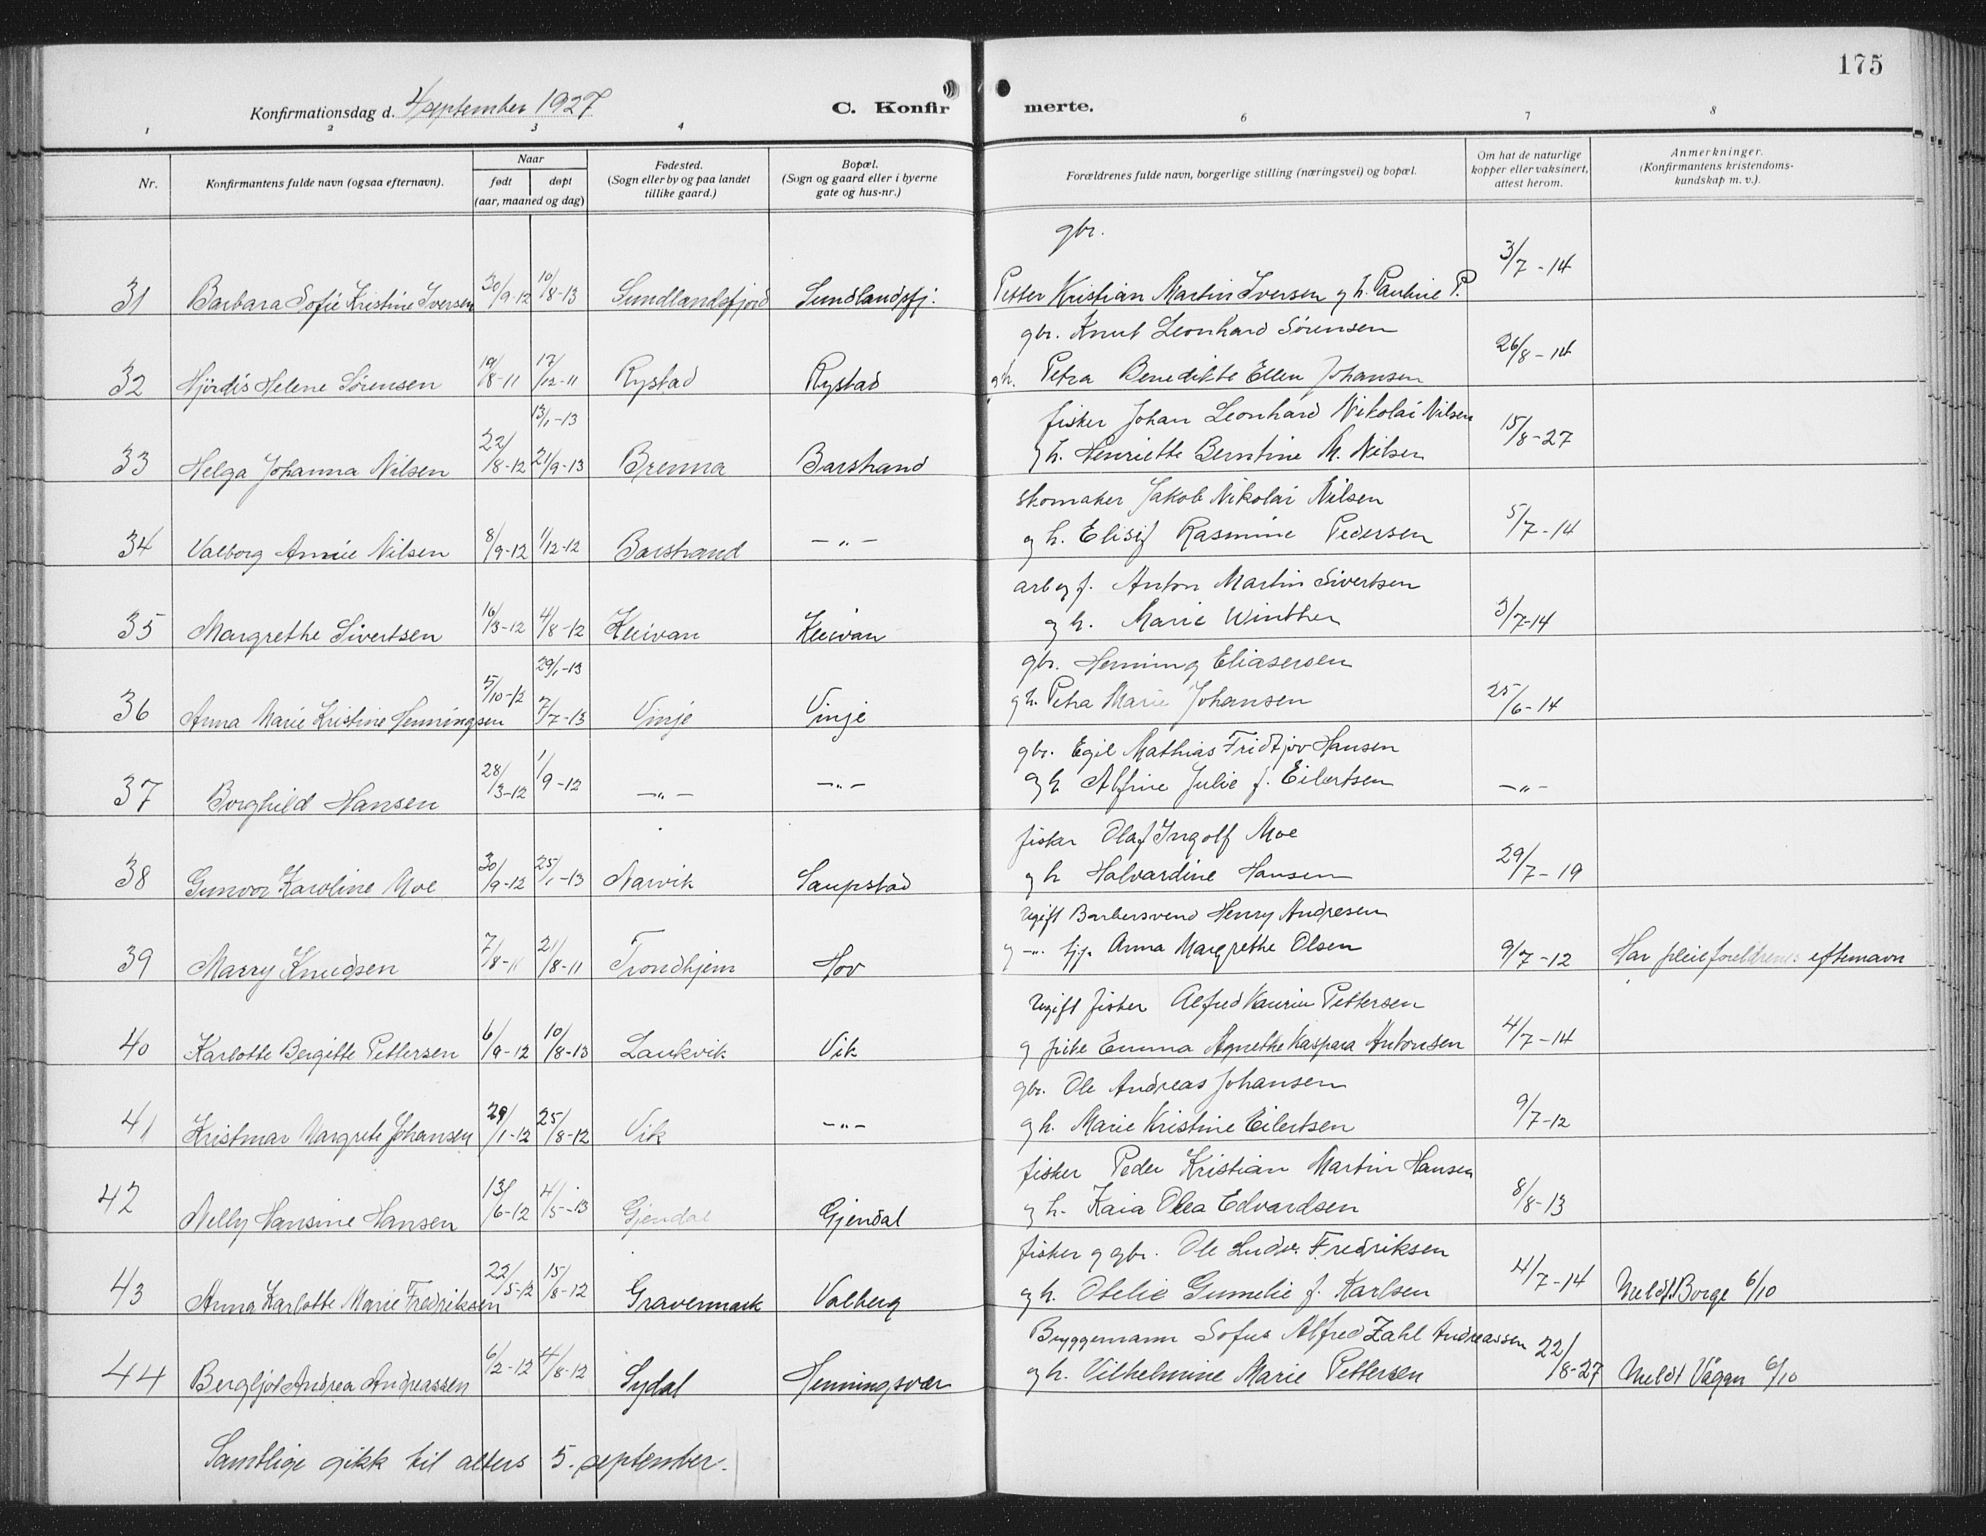 175
Konfirmationsdag d. 4 september 1927 C. Konfirmerte.
1 2 3 4 6 7 8
Nr. Konfirmantens fulde navn (ogsaa efternavn). Naar født døpt (aar, maaned og dag) Fødested. (Sogn eller by og paa landet tillike gaard.) Bopæl. (Sogn og gaard eller i byerne gate og hus-nr.) Forældrenes fulde navn, borgerlige stilling (næringsvei) og bopæl. Om hat de naturlige kopper eller vaksinert, attest herom. Anmerkninger. (Konfirmantens kristendomskundskap m. v.).
gbr.
31 Barbara Sofie Kristine Iversen 30/9-12 10/8-13 Sundlandsfjord Sundlandsfj. Petter Kristian Martin Iversen og h. Pauline P. 3/7-14
gbr. Knut Leonhard Sørensen
32 Hjørdis Helene Sørensen 19/8-11 17/12-11 Rystad Rystad og h. Petra Benedikte Ellen Johansen 26/8-14
13/1-13 fisker Johan Leonhard Nikolai Nilsen
33 Helga Johanna Nilsen 22/8-12 21/9-13 Brenna Barstrand og h. Henriette Berntine M. Nilsen 15/8-27
skomaker Jakob Nikolai Nilsen
34 Valborg Annie Nilsen 8/9-12 1/12-12 Barstrand -"- og h. Elisif Rasmine Pedersen 5/7-14
arb og f. Anton Martin Sivertsen
35 Margrethe Sivertsen 16/3-12 4/8-12 Kleivan Kleivan og h. Marie Winther 3/7-14
29/1-13 gbr. Henning Eliasersen
36 Anna Marie Kristine Henningsen 5/10-12 7/7-13 Vinje Vinje og h. Petra Marie Johansen 25/6-14
gbr. Egil Mathias Fridtjov Hansen
37 Borghild Hansen 28/3-12 1/9-12 -"- -"- og h Alfine Julie f. Eilertsen -"-
fisker Olaf Ingolf Moe
38 Gunvor Karoline Moe 30/9-12 25/1-13 Narvik Saupstad og h Halvardine Hansen 29/7-19
Ugift Barbersvend Henry Andresen
39 Marry Knudsen 7/8-11 21/8-11 Trondhjem Hov og -"- tj.p. Anna Margrethe Olsen 9/7-12 Har pleieforeldrenes efternavn
Ugift fisker Alfred Laurin Pettersen
40 Karlotte Bergitte Pettersen 6/9-12 10/8-13 Laukvik Vik og pike Emma Agnethe Kaspara Antonsen 4/7-14
gbr. Ole Andreas Johansen
41 Kristmar Margrete Johansen 29/1-12 25/8-12 Vik -"- og h. Marie Kristine Eilertsen 9/7-12
fisker Peder Kristian Martin Hansen
42 Nelly Hansine Hansen 13/6-12 4/5-13 Gjendal Gjendal og h. Kaia Olea Edvardsen 8/8-13
fisker og gbr. Ole Ludv. Fredriksen
43 Anna Karlotte Marie Fredriksen 22/5-12 15/8-12 Gravermark Valberg og h. Otelie Gunelie f. Karlsen 4/7-14 Meldt Borge 6/10
Bryggemann Sofus Alfred Zahl Andreassen
44 Bergljot Andrea Andreassen 6/2-12 4/8-12 Sydal Henningsvær og h. Vilhelmine Marie Pettersen 22/8-27 Meldt Vågan 6/10
Samtlige gikk til alters 5. september.